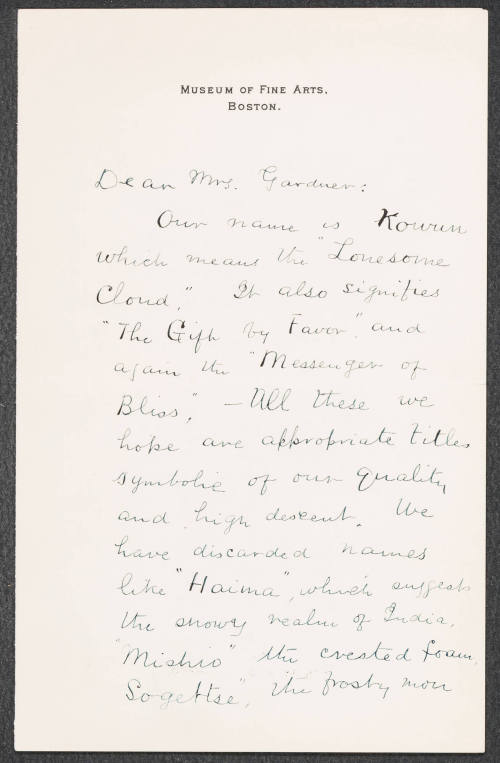 MUSEUM OF FINE ARTS,
BOSTON.
Dear Mrs. Gardner:
Our name is Kowun
which means the "Lonesome
Cloud". It also signifies
"The Gift by Favor" and
again the "Messenger of
Bliss". — All these we
hope are appropriate titles
symbolic of our quality
and high descent. We
have discarded names
like "Haima", which suggests
the snowy realm of India,
"Mishio" the crested foam,
Sogettse", the frosty moon